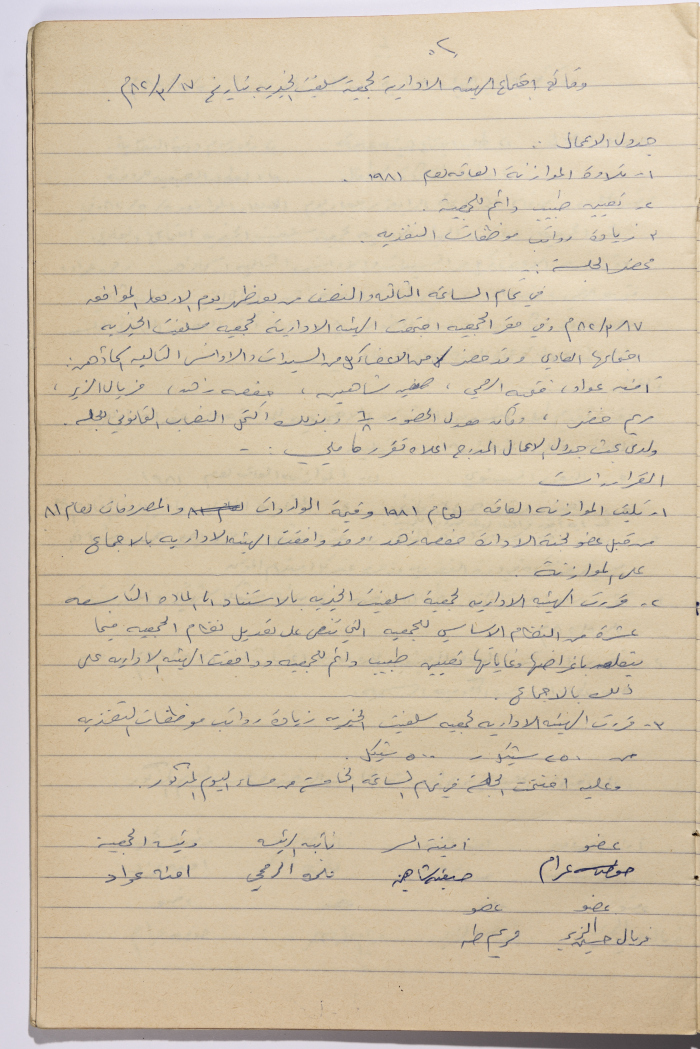 ٢.
وقائع اجتماع الهيئه الاداريه لجمعية سلفيت الخيريه بتاريخ ١٧/٣/٨٢م.
جدول الاعمال :.
١- تلاوة الموازنة العامه لعام ١٩٨١ .
٢- تعيين طبيب دائم للجمعية .
٣- زيادة رواتب موظفات التغذيه .
محضر الجلسة :.
في تمام الساعة الثالثه والنصف من بعد ظهر يوم الاربعاء الموافق
١٧/٣/٨٢م وفي مقر الجمعيه اجتمعت الهيئه الادارية لجمعيه سلفيت الخيريه
اجتماعها العادي وقد حضر من الاعضاء كل من السيدات والاوانس التاليه اسمائهن :
آمنه عواد، فتحيه الرمحي ، صفيه شاهين ، حفصه زاهد ، فريال الزير ،
مريم خضر ، وكان معدل الحضور وبذلك اكتمل النصاب القانوني للجلسه .
ولدى بحث جدول الاعمال المدرج اعلاه تقرر ما يلي :-
القرارات
١- تليت الموازنه العامه لعام ١٩٨١ وقيمة الواردات لعام ٨١ والمصروفات لعام ٨١
من قبل عضو لجنة الادارة حفصه زاهد ، وقد وافقت الهيئه الاداريه بالاجماع
على الموازنة .
٢- قررت الهيئه الاداريه لجمعية سلفيت الخيريه بالاستناد الى الماده التاسعه
عشرة من النظام الاساسي للجمعيه التي تنص على تعديل نظام الجمعيه فيما
يتعلق باغراضها وغاياتها تعيين طبيب دائم للجمعيه ووافقت الهيئه الاداريه على
ذلك بالاجماع .
٣- قررت الهيئه الاداريه لجمعيه سلفيت الخيريه زيادة رواتب موظفات التغذيه
من ٤٥٠ شيكل - ٥٠٠ شيكل .
وعليه اختتمت الجلسة في تمام الساعة الخامسة من مساء اليوم المذكور .
عضو أمينة السر نائبه الرئيسه رئيسه الجمعية
عرام صفيه شاهين فتحيه الرمحي امنه عواد
عضو عضو
فريال حسين الزير مريم طه